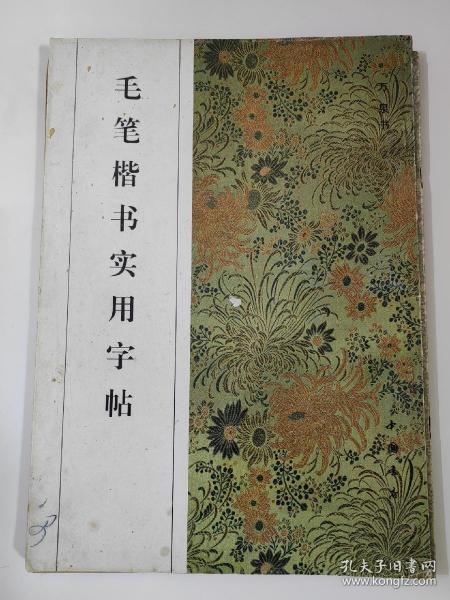 毛笔楷书实用字帖
孔夫子旧书网
www.kongfz.com